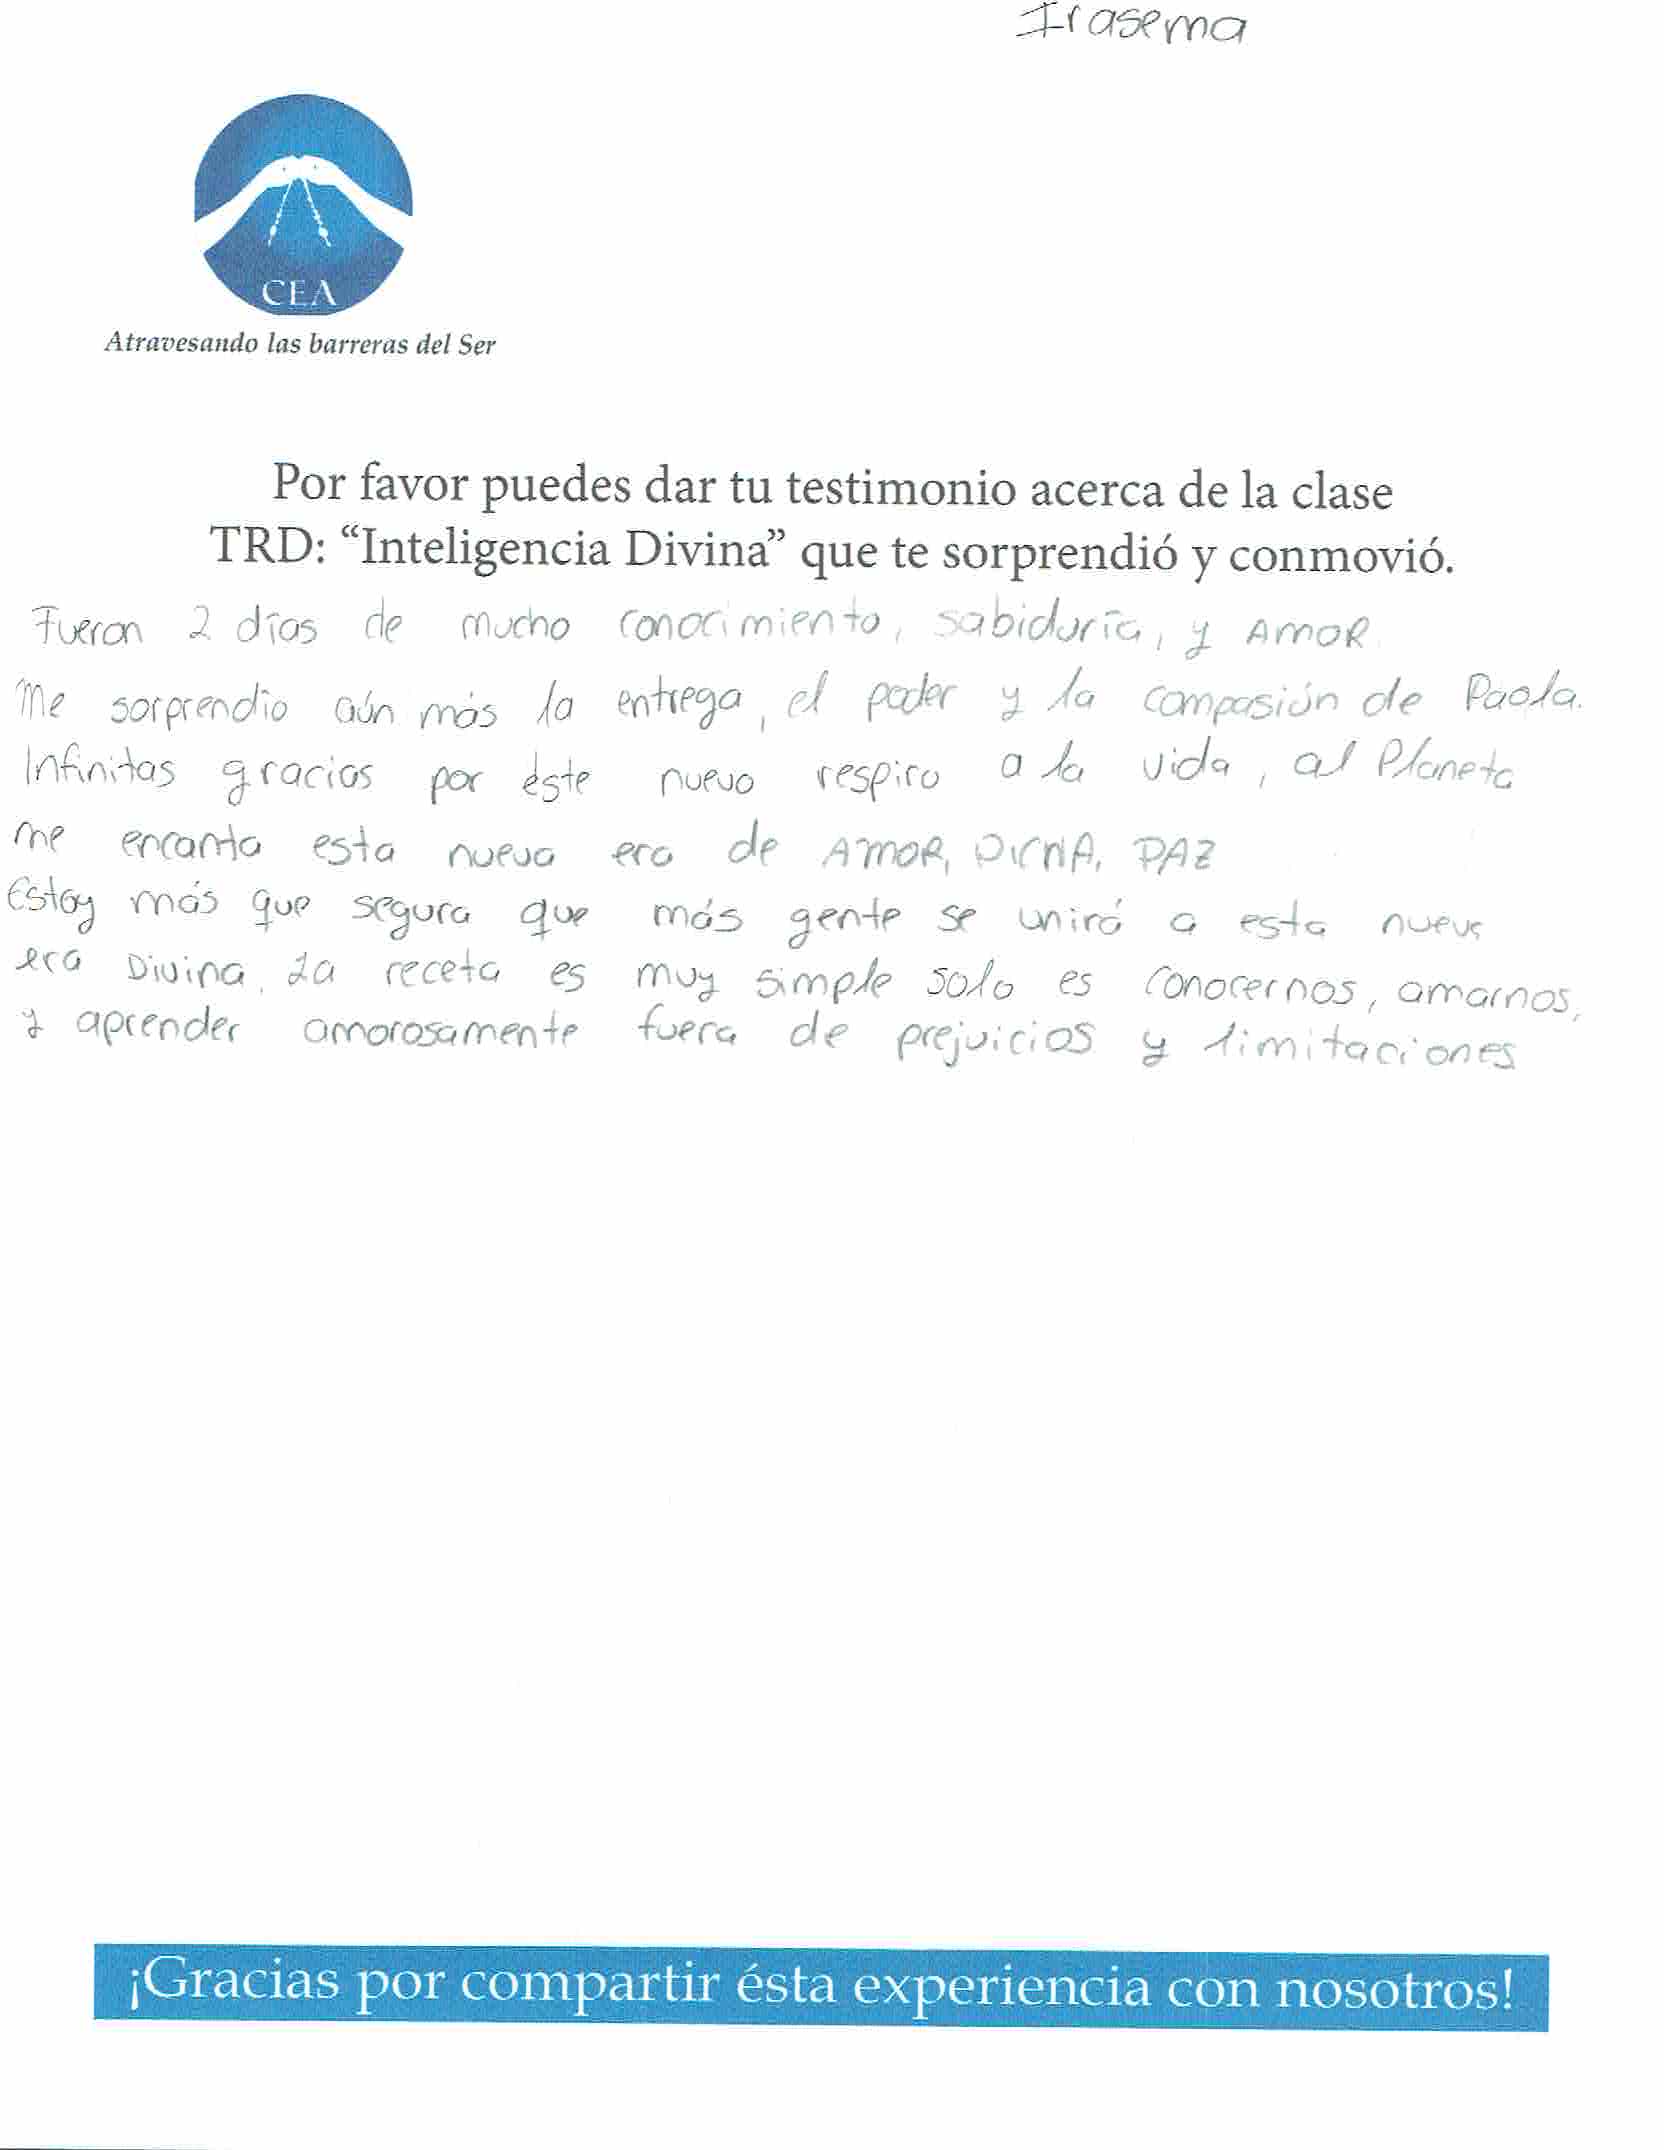 Irasema
CEA
Atravesando las barreras del Ser
Por favor puedes dar tu testimonio acerca de la clase
TRD: “Inteligencia Divina” que te sorprendió y conmovió.
Fueron 2 días de mucho conocimiento, sabiduría, y AMOR.
Me sorprendio aún más la entrega, el poder y la compasión de Paola.
Infinitas gracias por éste nuevo respiro a la vida, al Planeta
me encanta esta nueva era de AMOR, PAZ
Estoy más que segura que más gente se unirá a esta nueva
era Divina. La receta es muy simple solo es conocernos, amarnos,
y aprender amorosamente fuera de prejuicios y limitaciones
¡Gracias por compartir ésta experiencia con nosotros!